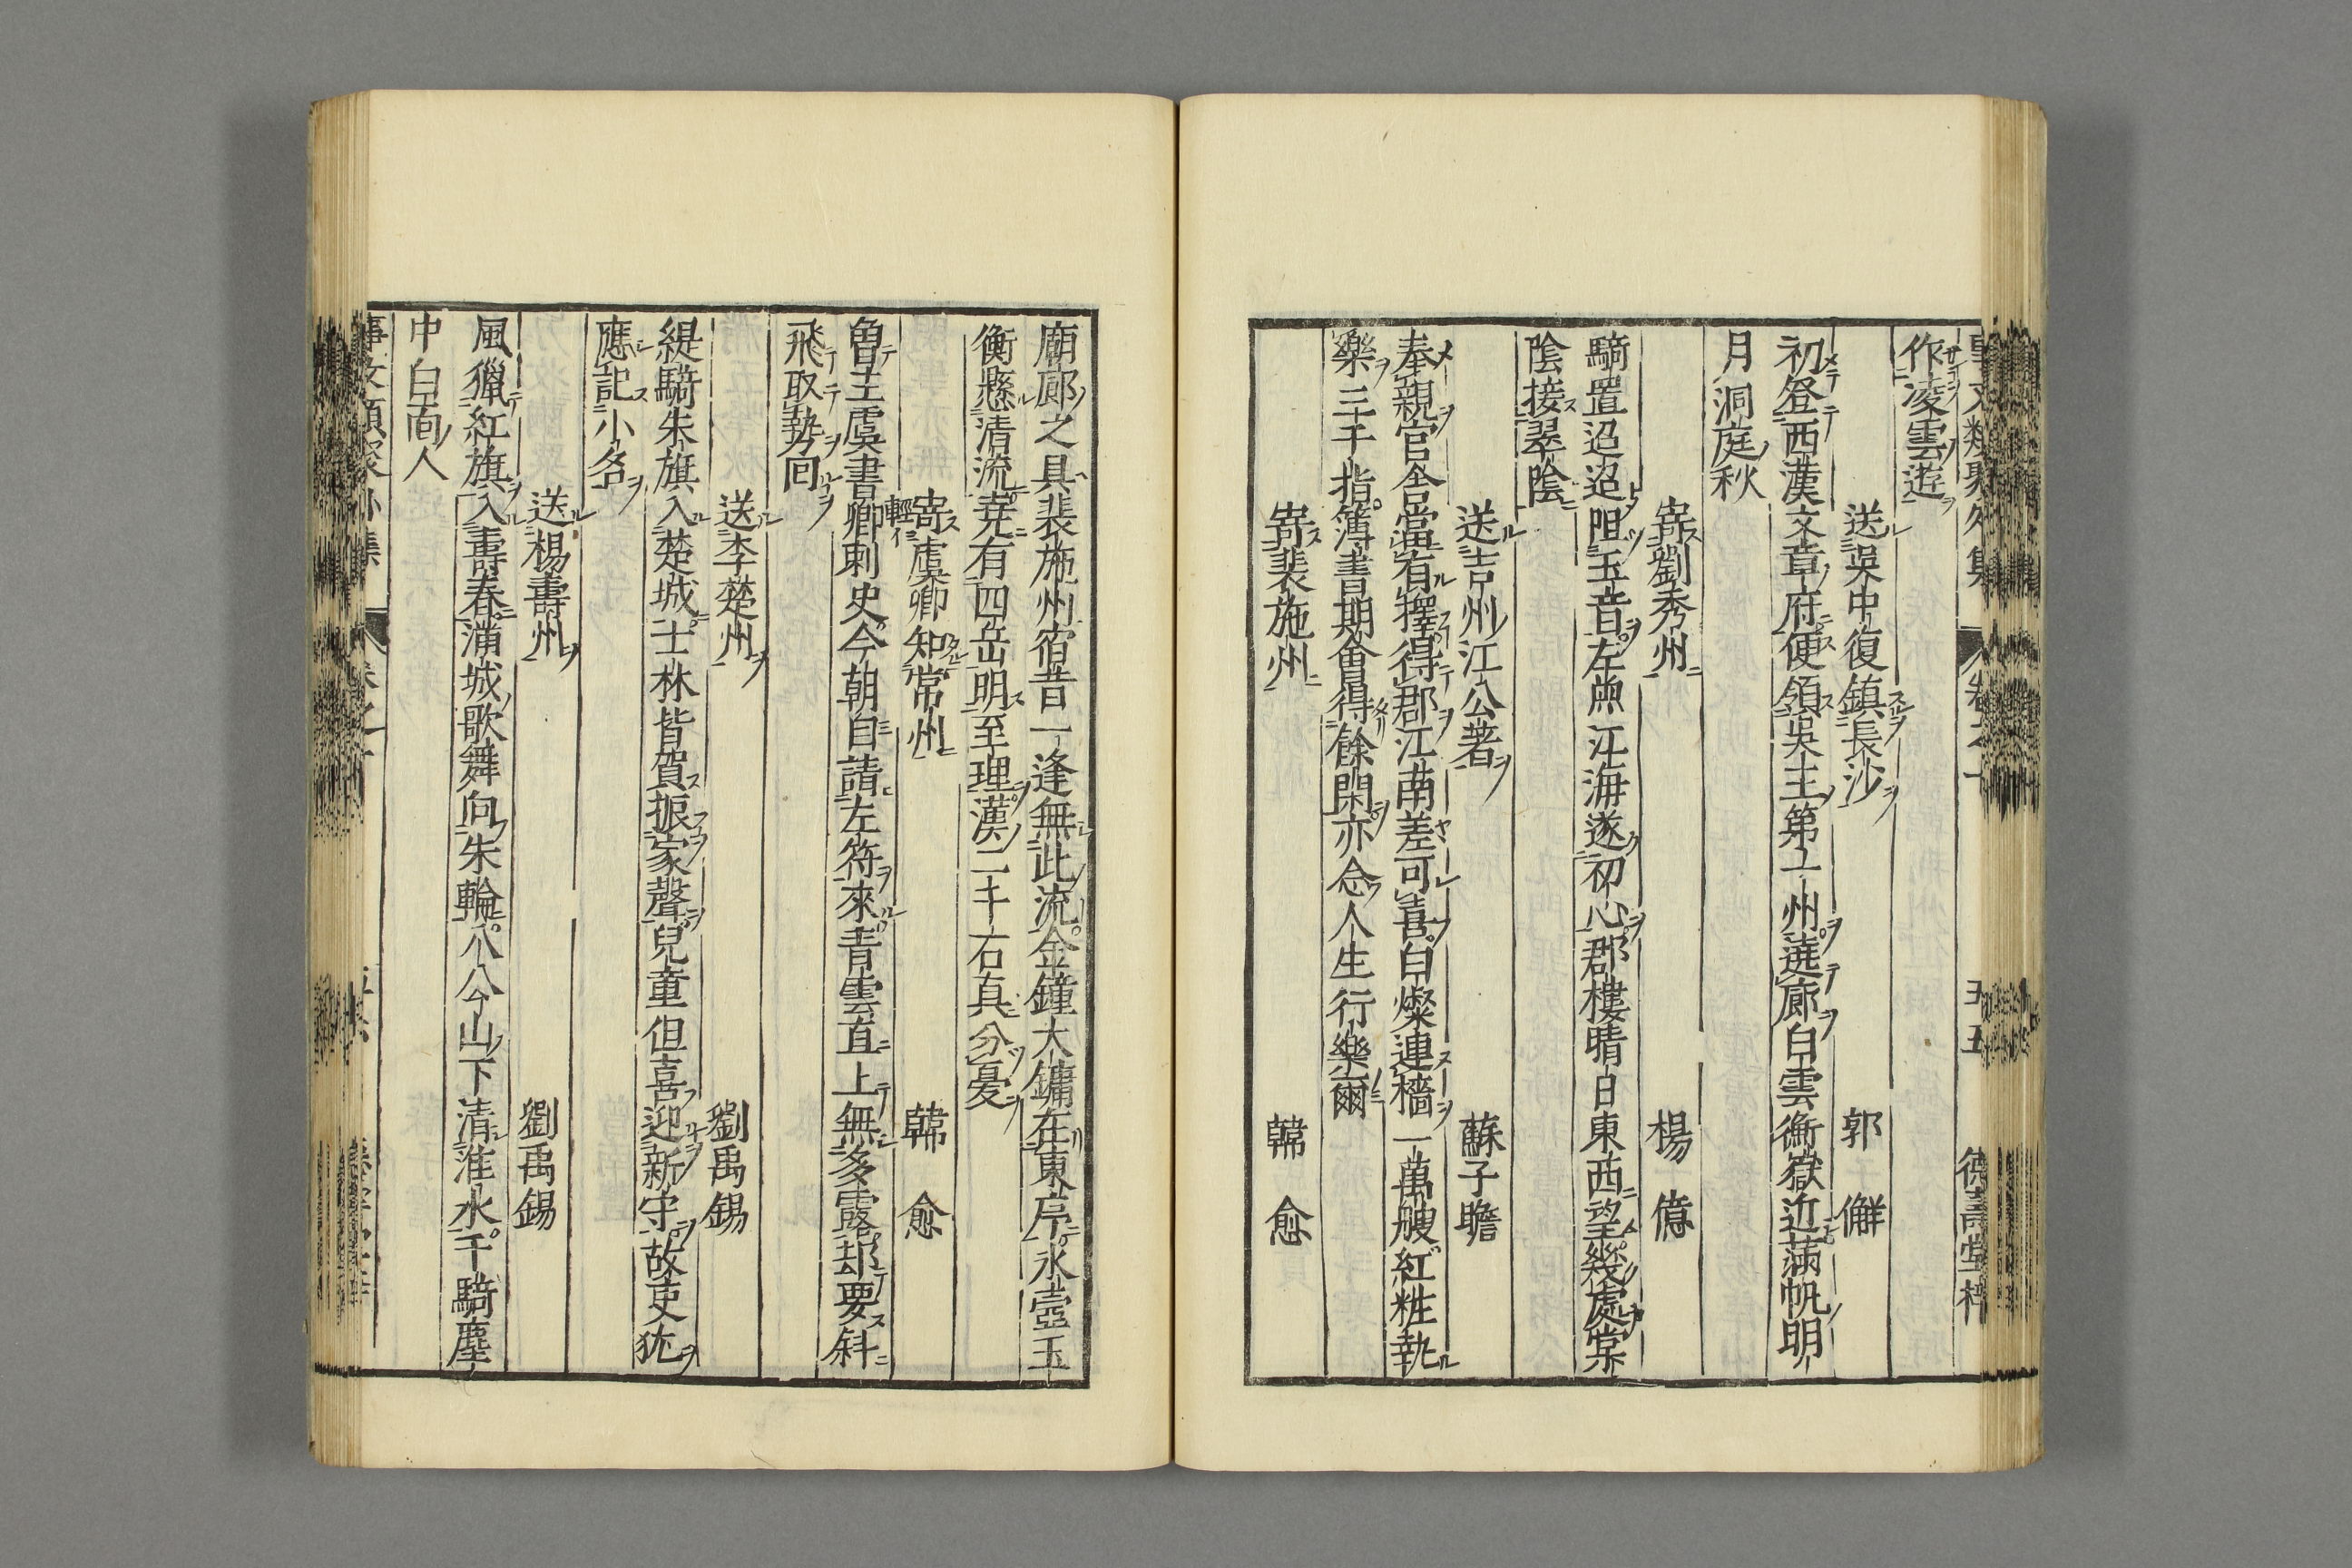 作凌雲遊
送吳中復鎮長沙　郭
初登西漢文章府便領吳王第一州遶廊白雲衡嶽近滿帆明
月洞庭秋
寄劉秀州　楊億
騎置迢迢阻玉音左魚江海遂初心郡樓晴日東西望幾處棠
陰接翠陰
送吉州江公著　蘇子瞻
奉親官舍當有擇得郡江南差可喜白燦連檣一萬艘紅粧執
樂三千指簿書期會得餘閑亦念人生行樂爾
寄裴施州　韓愈
廟廊之具裴施州宿昔一逢無此流金鐘大鏞在東序氷壺玉
衡懸清流堯有四岳明至理漢二千石真分憂
寄虞卿知常州　韓愈
輕イ
魯王虞書卿刺史今朝自請左符來青雲直上無多露却要斜
飛取勢回
送李楚州　劉禹錫
緹騎朱旗入楚城士林皆賀振家聲兒童但喜迎新守故吏犹
應記小名
送楊壽州　劉禹錫
風獵紅旗入壽春滿城歌舞向朱輪八公山下清淮水千騎塵
中白面人